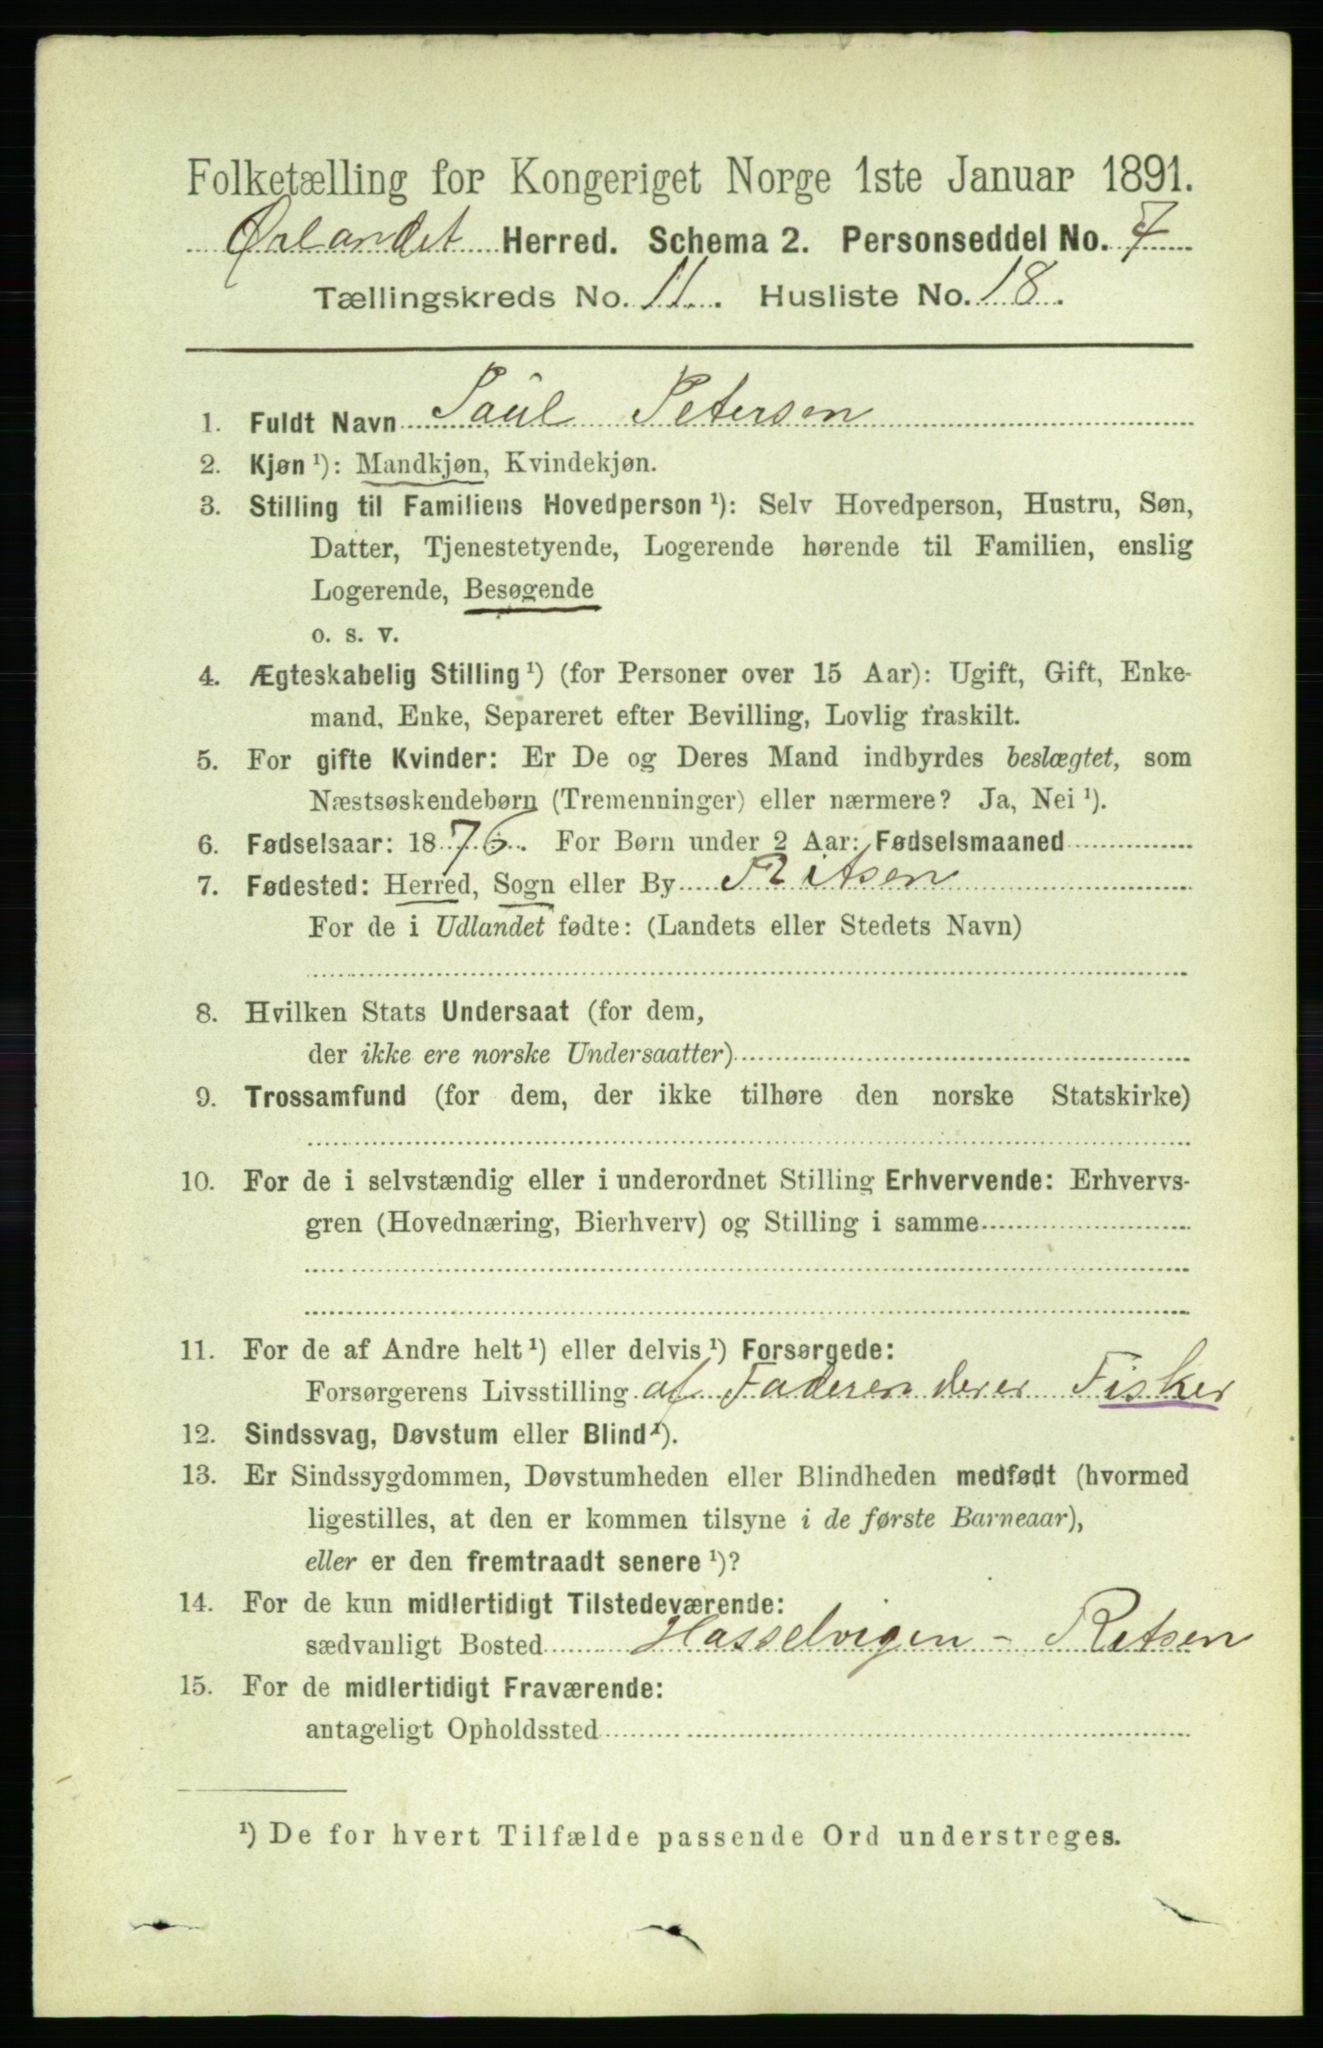 Folketælling for Kongeriget Norge 1ste Januar 1891.
Ørlandet Herred. Schema 2. Personseddel No. 7
Tællingskreds No. 11. Husliste No. 18.
1. Fuldt Navn Paul Petersen
2. Kjøn ¹): Mandkjøn, Kvindekjøn.
3. Stilling til Familiens Hovedperson ¹): Selv Hovedperson, Hustru, Søn,
Datter, Tjenestetyende, Logerende hørende til Familien, enslig
Logerende, Besøgende
o. s. v.
4. Ægteskabelig Stilling ¹) (for Personer over 15 Aar): Ugift, Gift, Enke-
mand, Enke, Separeret efter Bevilling, Lovlig fraskilt.
5. For gifte Kvinder: Er De og Deres Mand indbyrdes beslægtet, som
Næstsøskendebørn (Tremenninger) eller nærmere? Ja, Nei ¹).
6. Fødselsaar: 1876. For Børn under 2 Aar: Fødselsmaaned
7. Fødested: Herred, Sogn eller By Ritsen
For de i Udlandet fødte: (Landets eller Stedets Navn)
8. Hvilken Stats Undersaat (for dem,
der ikke ere norske Undersaatter)
9. Trossamfund (for dem, der ikke tilhøre den norske Statskirke)
10. For de i selvstændig eller i underordnet Stilling Erhvervende: Erhvervs-
gren (Hovednæring, Bierhverv) og Stilling i samme
11. For de af Andre helt ¹) eller delvis ¹) Forsørgede:
Forsørgerens Livsstilling af Faderen der er Fisker
12. Sindssvag, Døvstum eller Blind ¹).
13. Er Sindssygdommen, Døvstumheden eller Blindheden medfødt (hvormed
ligestilles, at den er kommen tilsyne i de første Barneaar),
eller er den fremtraadt senere ¹)?
14. For de kun midlertidigt Tilstedeværende:
sædvanligt Bosted Hasselvigen - Ritsen
15. For de midlertidigt Fraværende:
antageligt Opholdssted
¹) De for hvert Tilfælde passende Ord understreges.